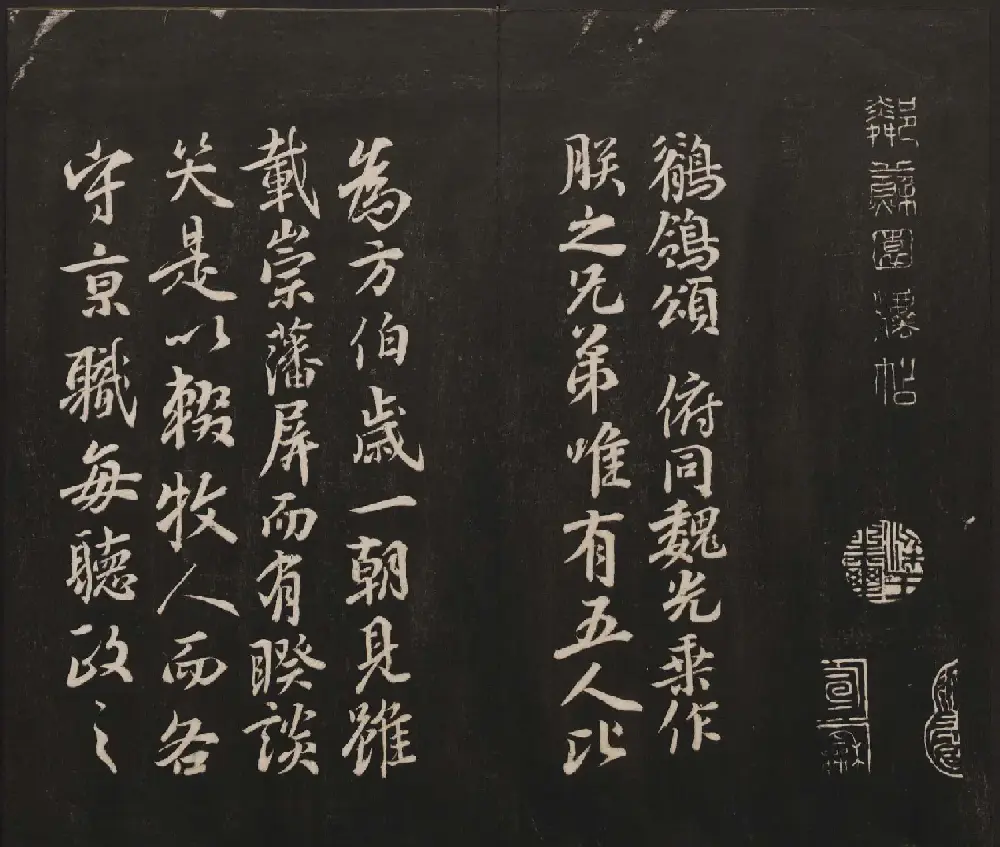 鄰蘇園法帖
鶺鴒頌 俯同魏光乘作
朕之兄弟唯有五人比
為方伯歲一朝見雖
載崇藩屏而有睽談
笑是以輟牧人而各
守京職每聽政之